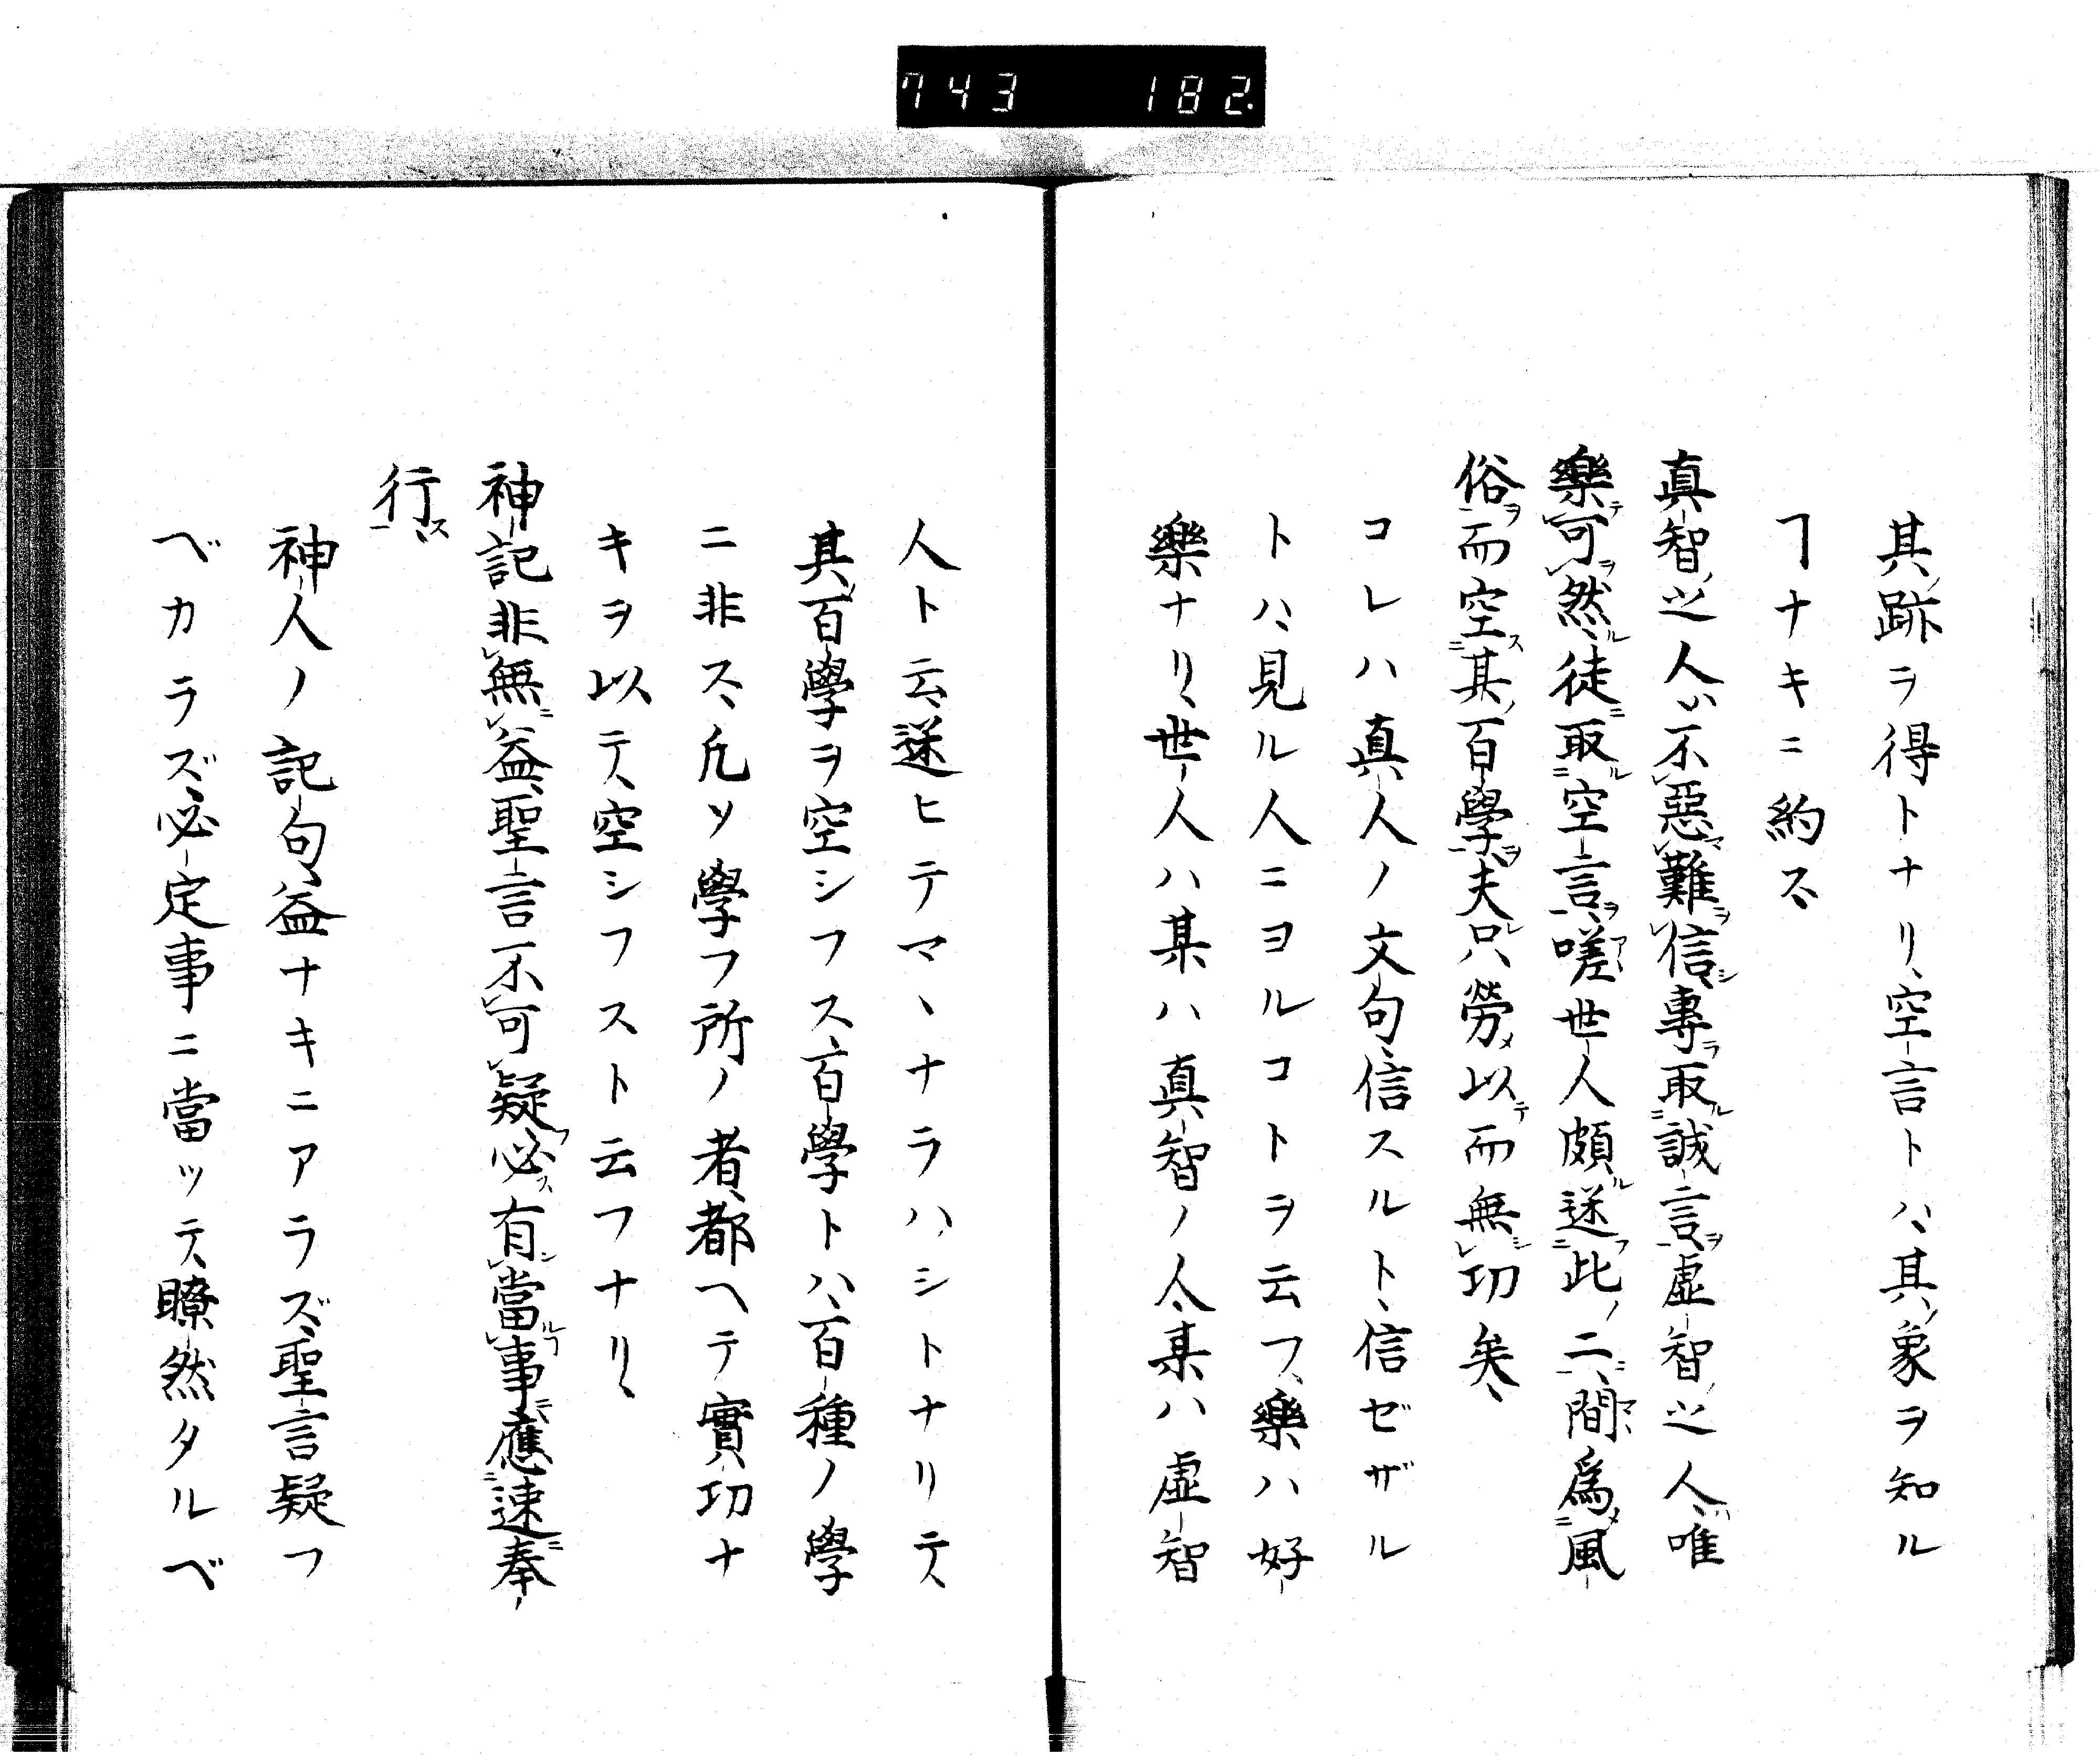 743 182.
其跡ヲ得トナリ、空言トハ、其象ヲ知ル
ヿナキニ約ス、
真智之人ハ不惡難信、專取誠言、虚智之人ハ唯
樂可然、徒取空言、嗟世人頗迷此二、間爲風
俗而空其百學、夫只勞以而無功矣、
コレハ真人ノ文句、信スルト、信ゼザル
トハ、見ル人ニヨルコトヲ云フ、樂ハ好
樂ナリ、世人ハ某ハ真智ノ人、某ハ虚智
人ト云、迷ヒテマヽナラハシトナリテ、
其百學ヲ空シフス、百學トハ、百種ノ學
ニ非ス、凡ソ學フ所ノ者、都ヘテ實功ナ
キヲ以テ、空シフスト云フナリ、
神記非無益、聖言不可疑、必有當事、應速奉
行、
神人ノ記句、益ナキニアラズ、聖言疑フ
ベカラズ、必定事ニ當ッテ、瞭然タルベ